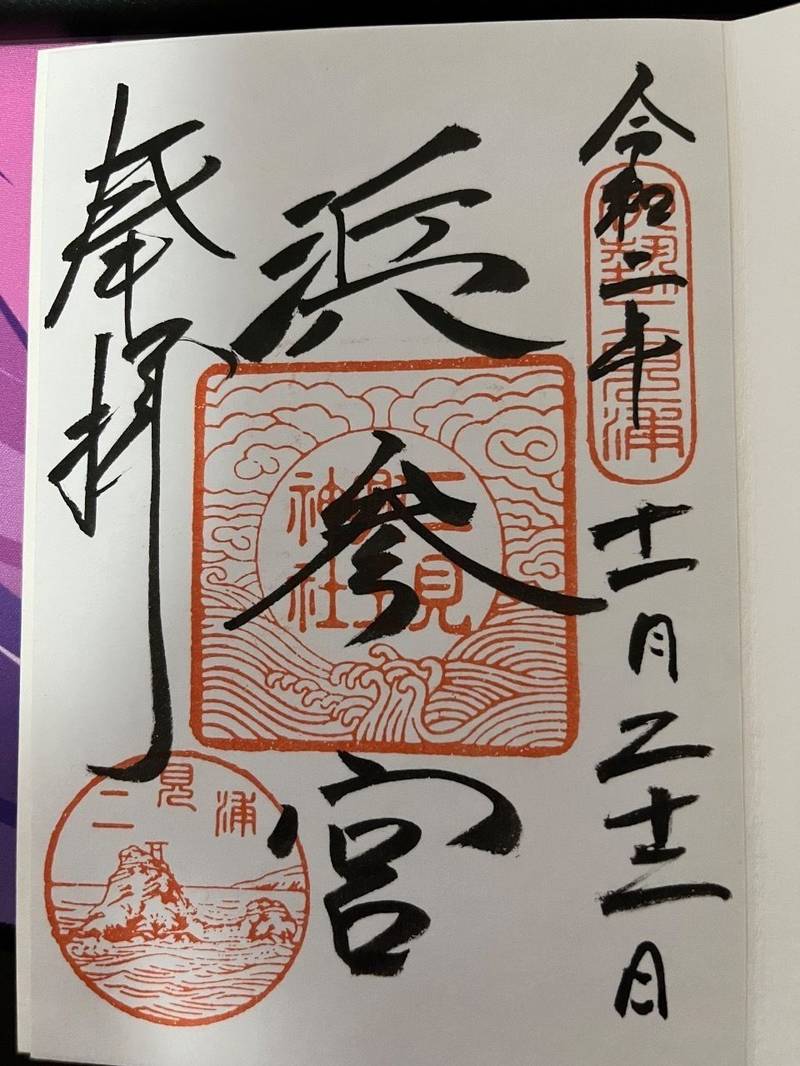 令和二年十一月二十二日
伊勢二見浦
浜参宮
二見興玉神社
奉拝
二見浦